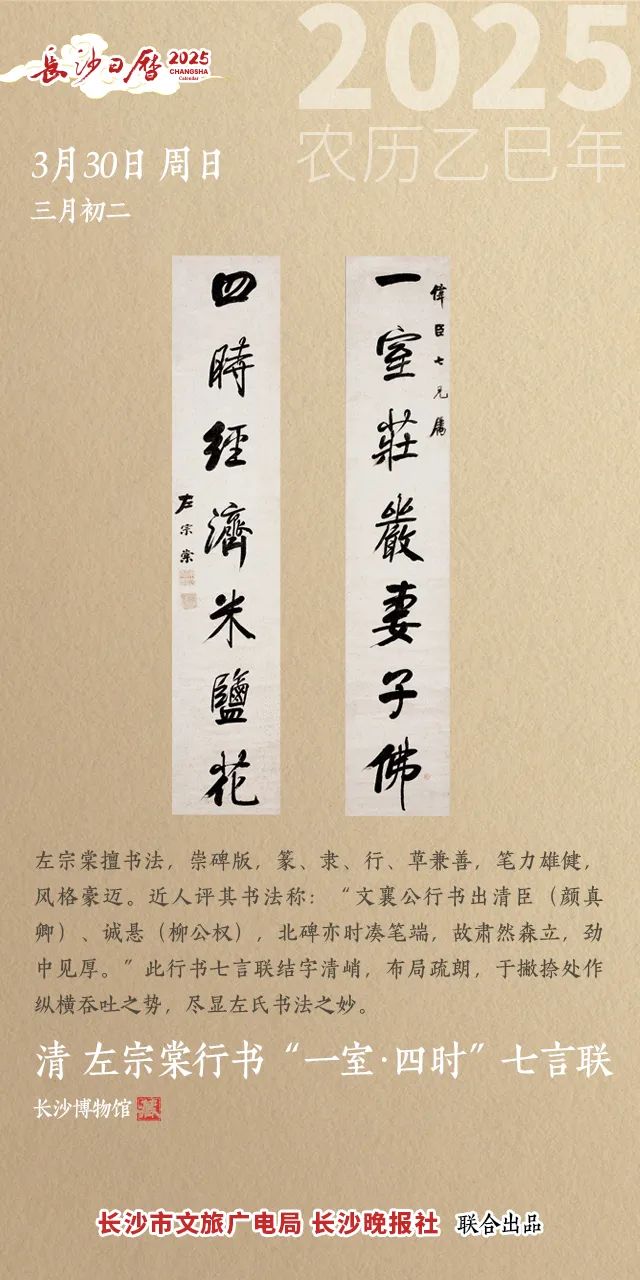 長沙日曆 2025
CHANGSHA
Calendar
2025
农历乙巳年
3月30日 周日
三月初二
偉臣七兄屬
一室莊嚴妻子佛
四時經濟米鹽花
左宗棠
左宗棠擅书法，崇碑版，篆、隶、行、草兼善，笔力雄健，
风格豪迈。近人评其书法称：“文襄公行书出清臣（颜真
卿）、诚悬（柳公权），北碑亦时凑笔端，故肃然森立，劲
中见厚。”此行书七言联结字清峭，布局疏朗，于撇捺处作
纵横吞吐之势，尽显左氏书法之妙。
清 左宗棠行书“一室·四时”七言联
长沙博物馆 藏
长沙市文旅广电局 长沙晚报社 联合出品